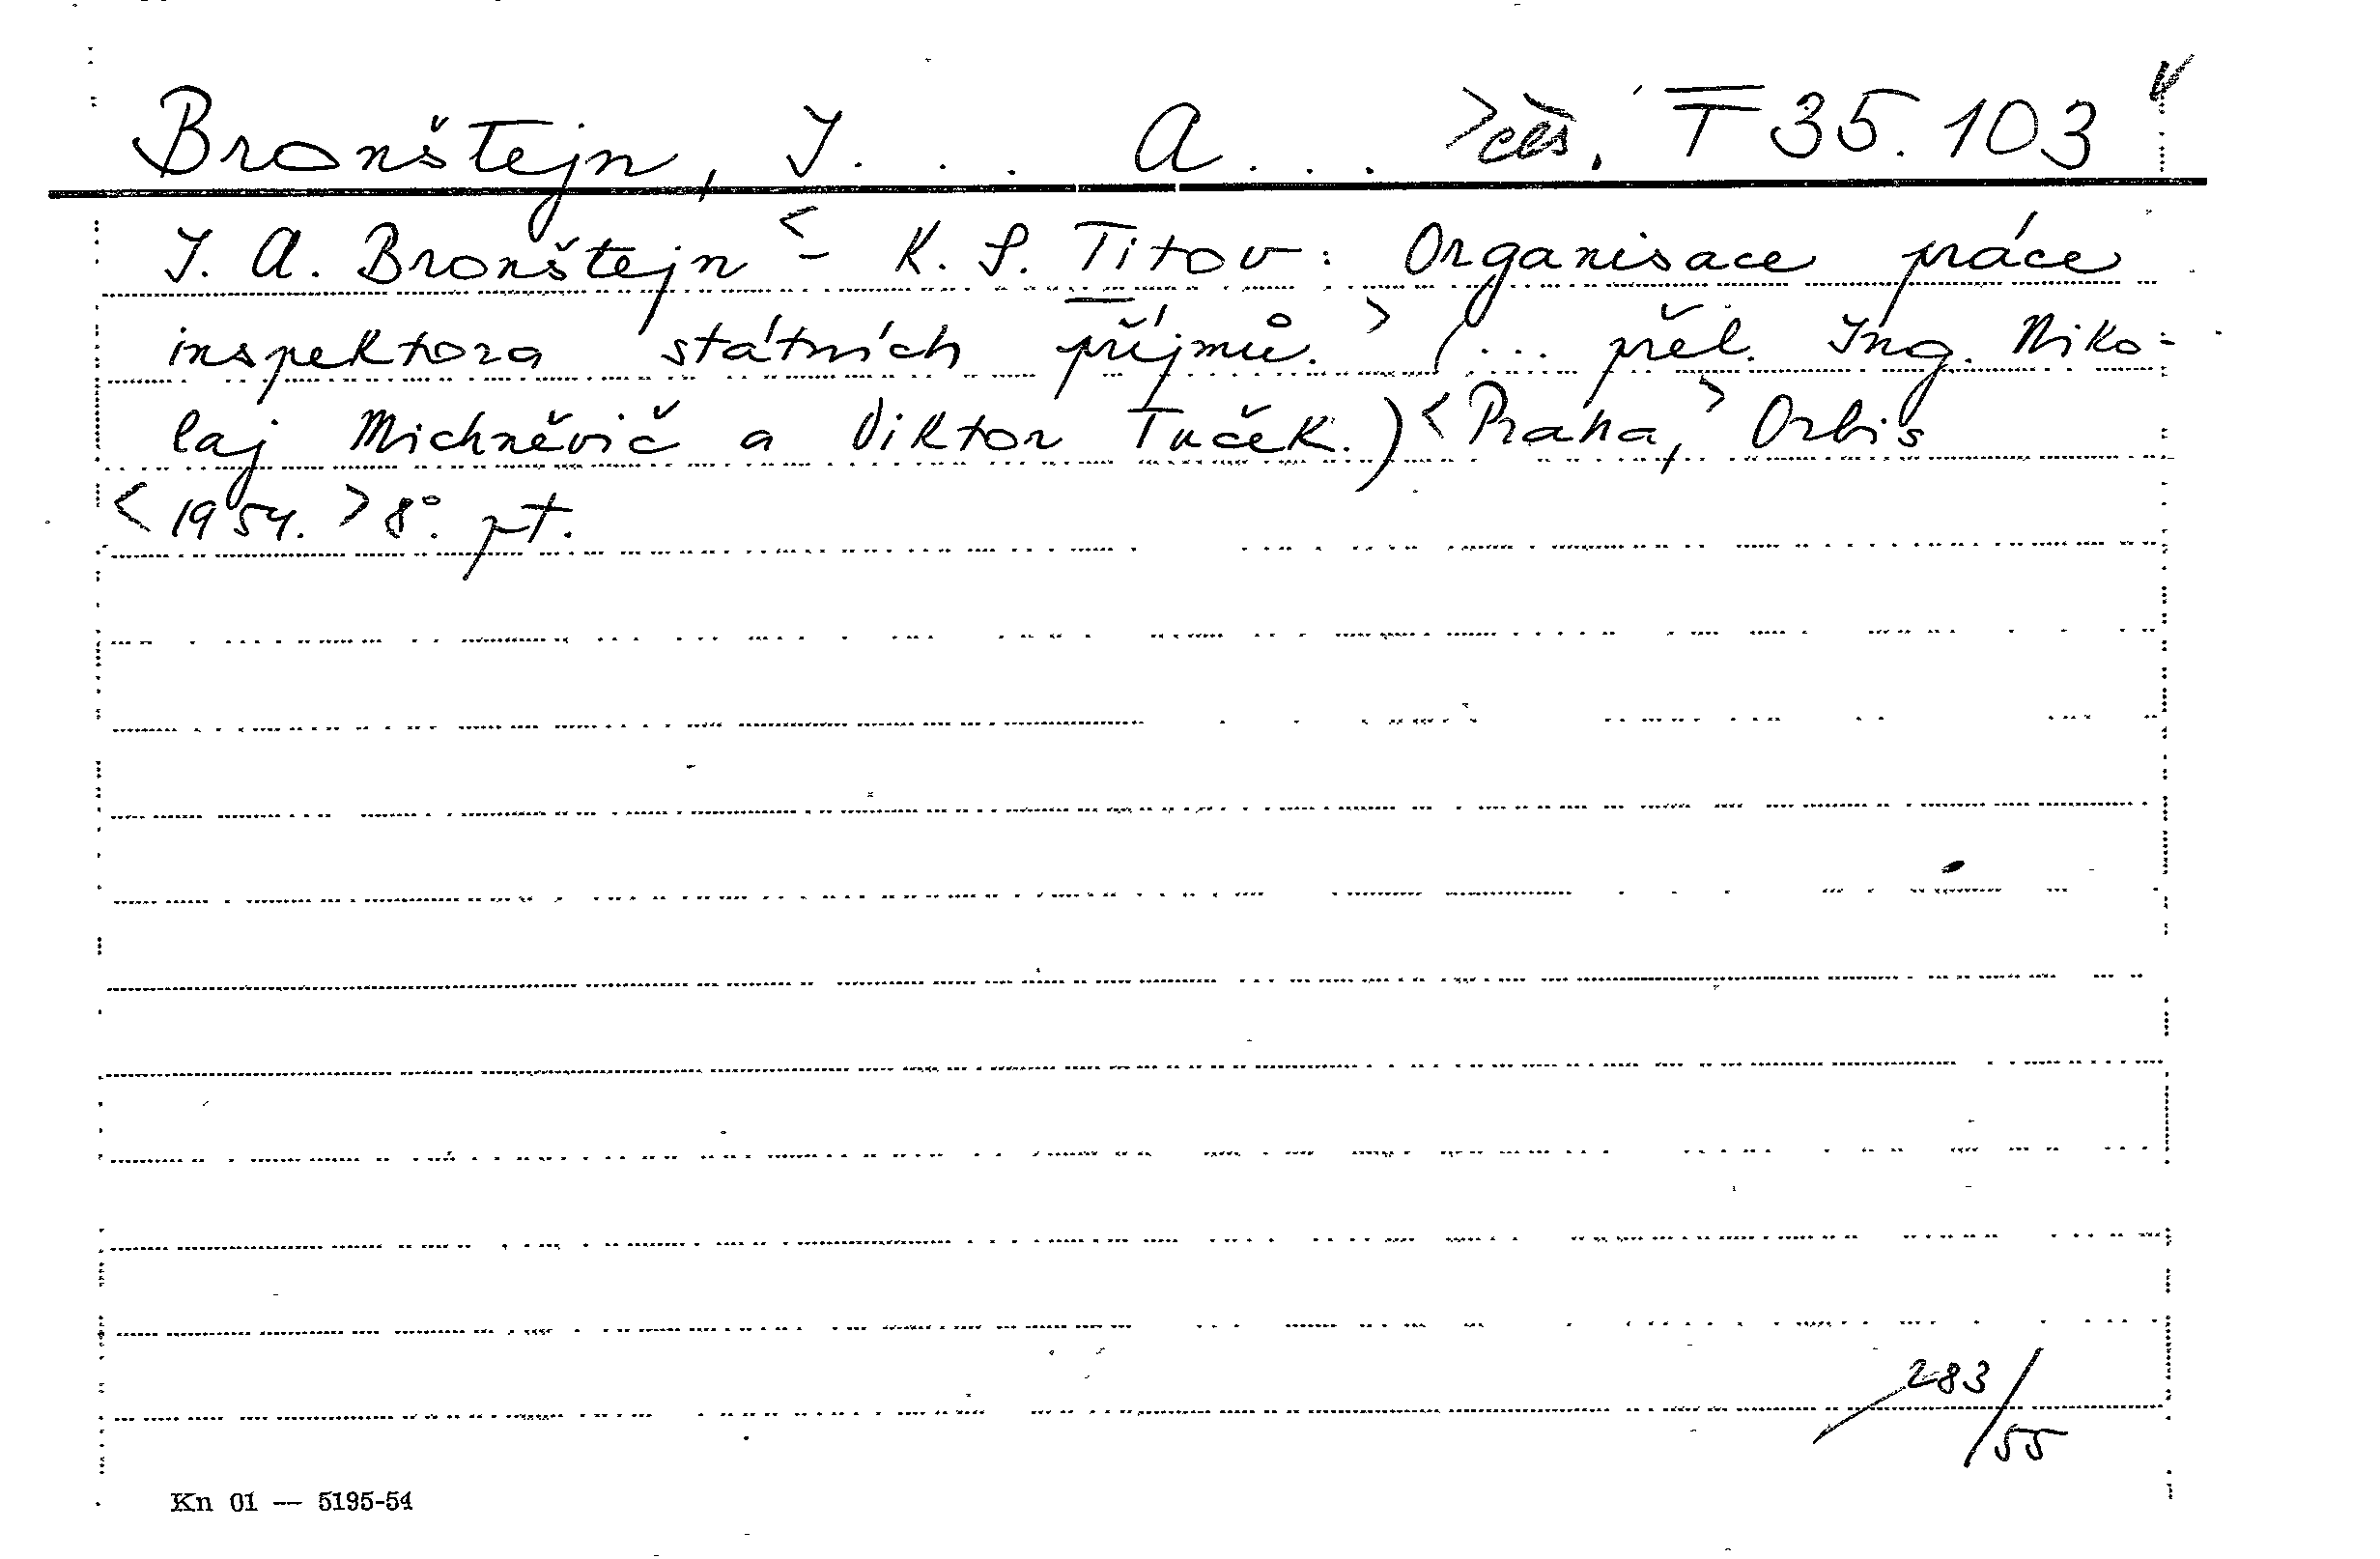 Bronštejn, I. . . A. . . >čes. T 35.103
I. A. Bronštejn < - K. S. Titov: Organisace práce
inspektora státních příjmů. > (... přel. Ing. Niko-
laj Michněvič a Viktor Tuček.) < Praha, > Orbis
< 1954. > 8°. pt.
283/55
Kn 01 — 5195-54